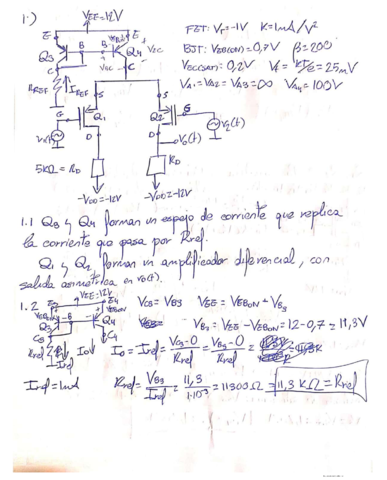 1.)
VEE=12V
E
E
Q3
B
B
Q4
VEC
C
C
RREF
IREF
G
S
S
G
Q1
Q2
D
D
v1(t)
v2(t)
v0(t)
5KΩ = RD
RD
-VDD=-12V
-VDD=-12V
FET: VT=-1V K=1mA/V²
BJT: VEB(ON)=0,7V β=200
VEC(SAT)=0,2V Vt=kT/e=25mV
VA1=VA2=VA3=∞ VA4=100V
1.1 Q3 y Q4 forman un espejo de corriente que replica
la corriente que pasa por Rref.
Q1 y Q2 forman un amplificador diferencial, con
salida asimétrica en v0(t).
1.2
VEE=12V
E3
E4
VEBON
Q3
Q4
C3
C4
Rref
Iref
Io
VC3=VB3 VEE=VEBON+VB3
VB3=VEE-VEBON=12-0,7=11,3V
Io=Iref=VC3-0/Rref=VB3-0/Rref
Iref=1mA Rref=VB3/Iref=11,3/1·10⁻³=11300Ω=11,3KΩ=Rref